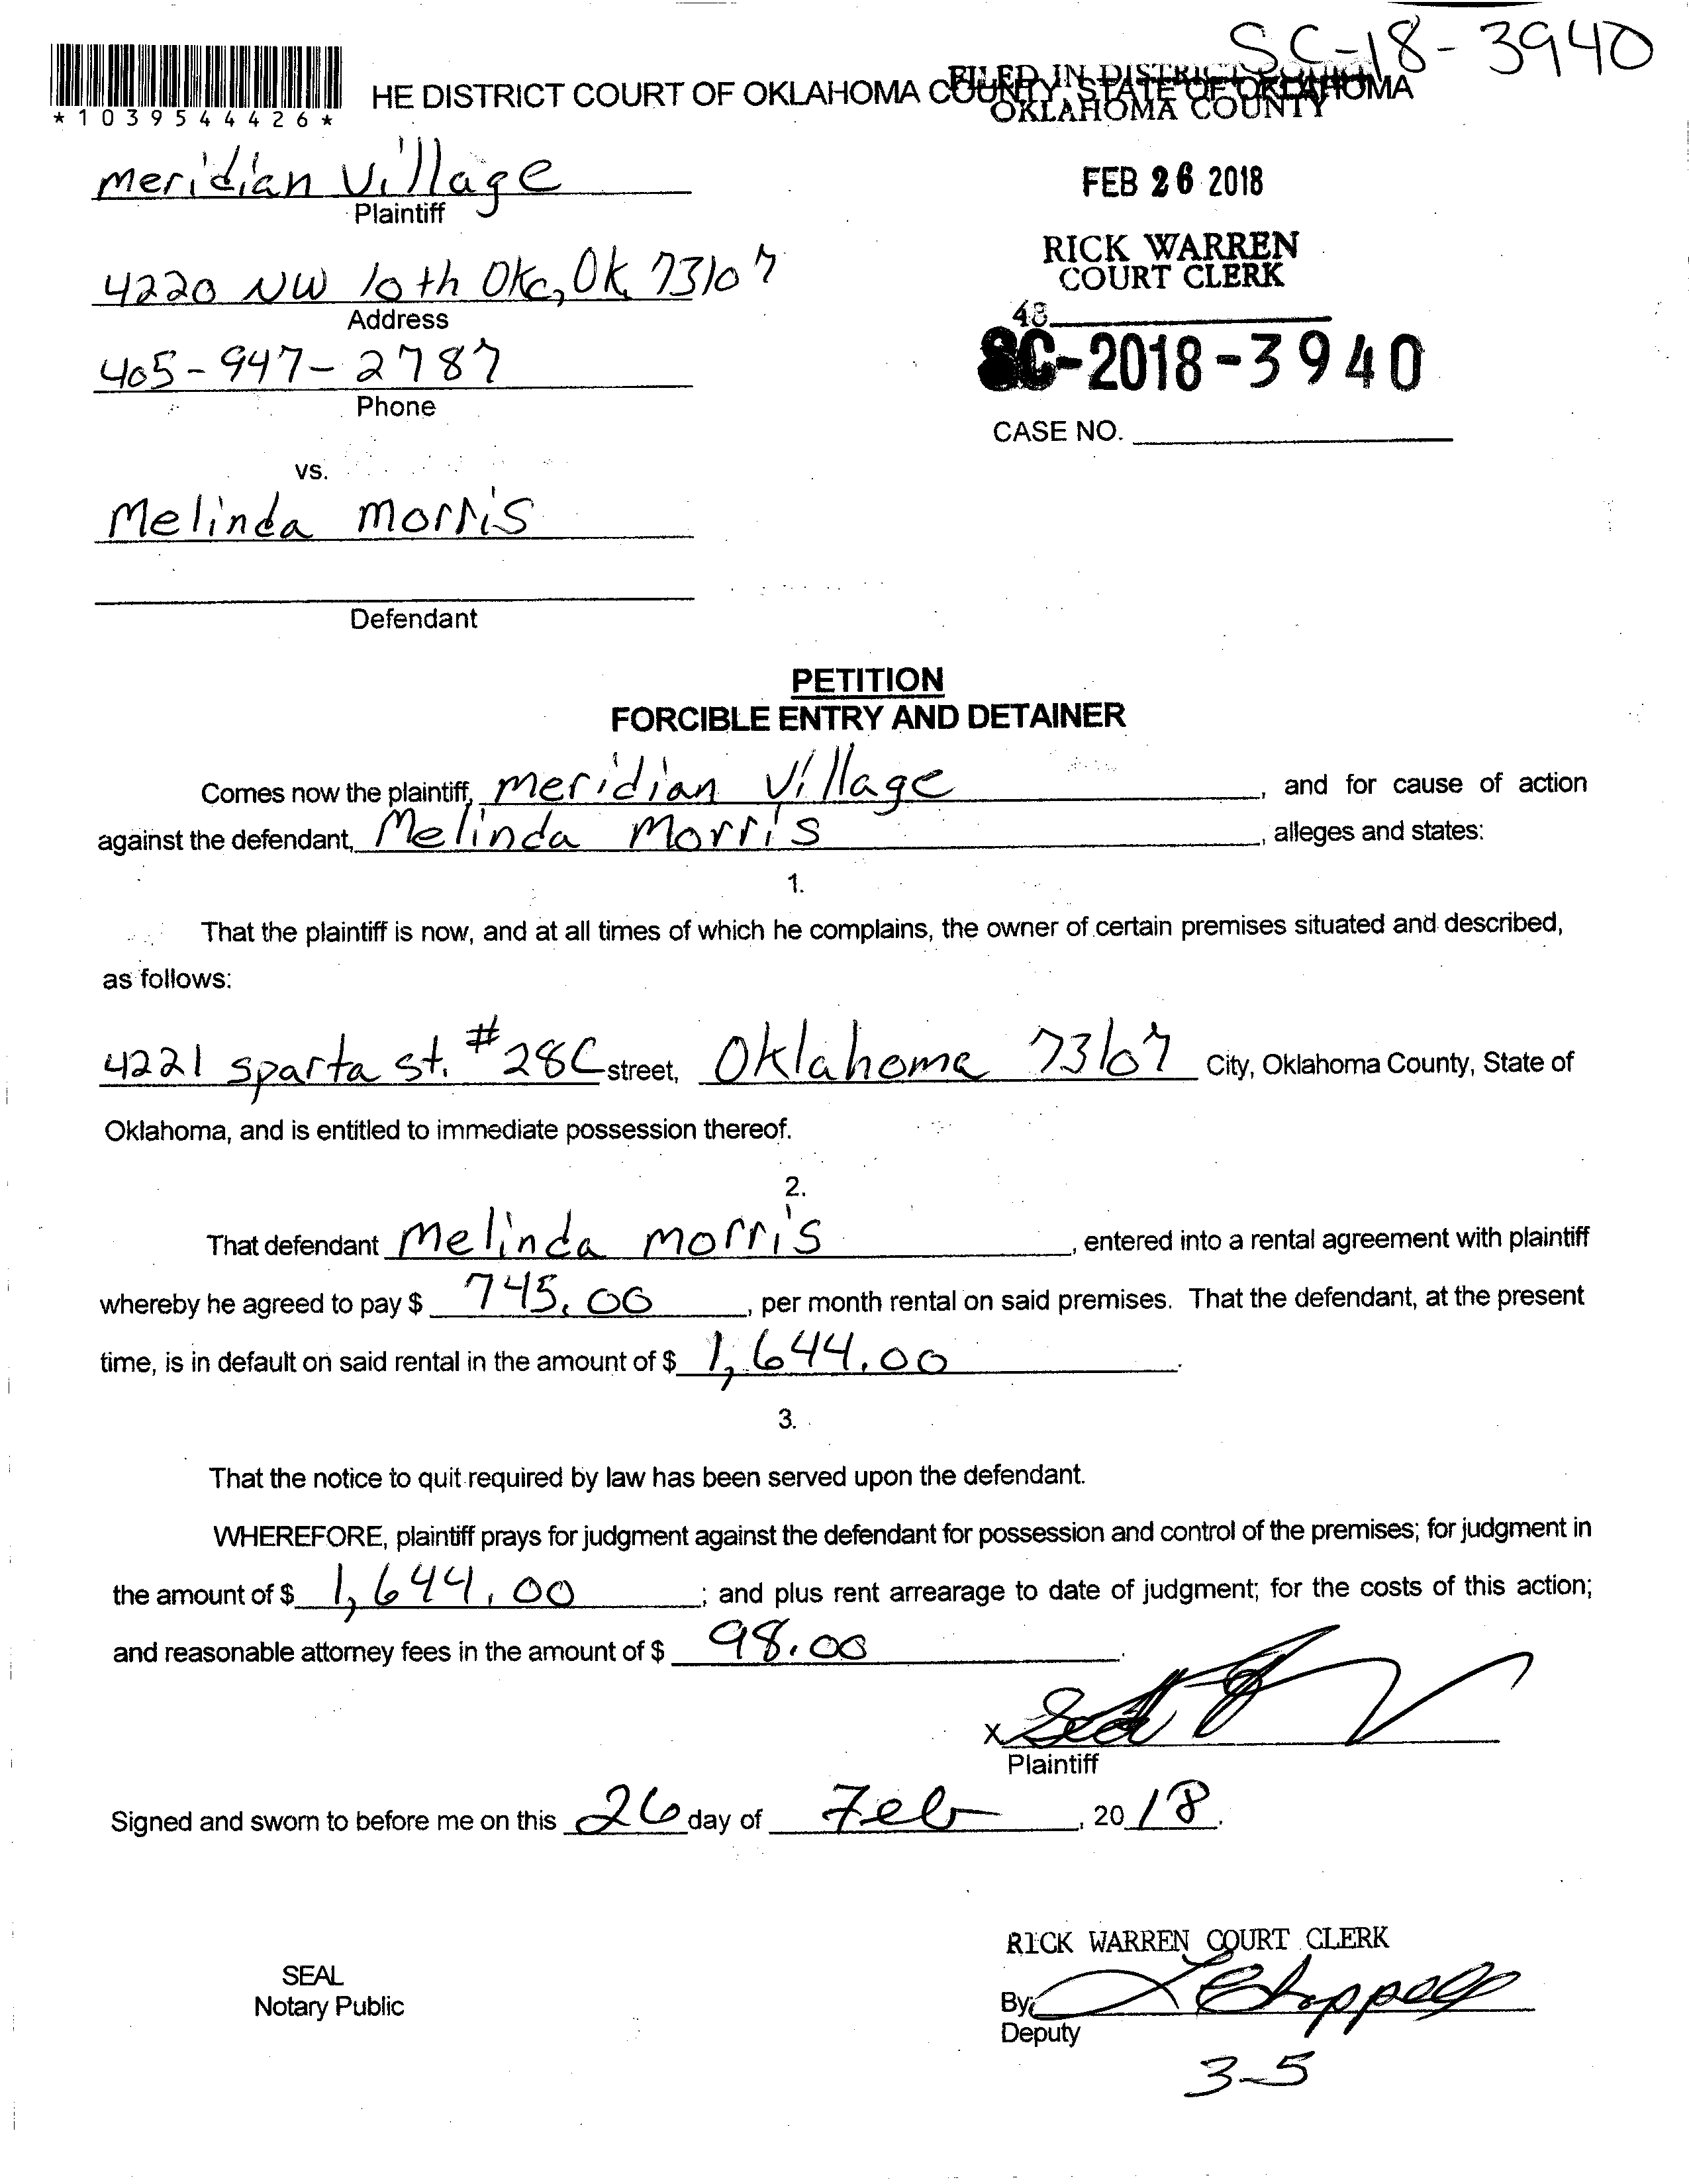 SC-18-3940
*1039544426*
HE DISTRICT COURT OF OKLAHOMA COUNTY, STATE OF OKLAHOMA
FILED IN DISTRICT COURT
OKLAHOMA COUNTY
meridian Village
Plaintiff
FEB 26 2018
RICK WARREN
COURT CLERK
4220 NW 10th Okc, Ok 73107
Address
48
405-947-2787
Phone
SC-2018-3940
CASE NO.
vs.
Melinda morris
Defendant
PETITION
FORCIBLE ENTRY AND DETAINER
Comes now the plaintiff, meridian Village, and for cause of action
against the defendant, Melinda Morris, alleges and states:
1.
That the plaintiff is now, and at all times of which he complains, the owner of certain premises situated and described,
as follows:
4221 sparta st. #28C street, Oklahoma 73107 City, Oklahoma County, State of
Oklahoma, and is entitled to immediate possession thereof.
2.
That defendant Melinda morris, entered into a rental agreement with plaintiff
whereby he agreed to pay $ 745.00, per month rental on said premises. That the defendant, at the present
time, is in default on said rental in the amount of $ 1,644.00.
3.
That the notice to quit required by law has been served upon the defendant.
WHEREFORE, plaintiff prays for judgment against the defendant for possession and control of the premises; for judgment in
the amount of $ 1,644.00; and plus rent arrearage to date of judgment; for the costs of this action;
and reasonable attorney fees in the amount of $ 98.00.
X
Plaintiff
Signed and sworn to before me on this 26 day of Feb, 2018.
RICK WARREN COURT CLERK
SEAL
Notary Public
By:
Deputy
3-5